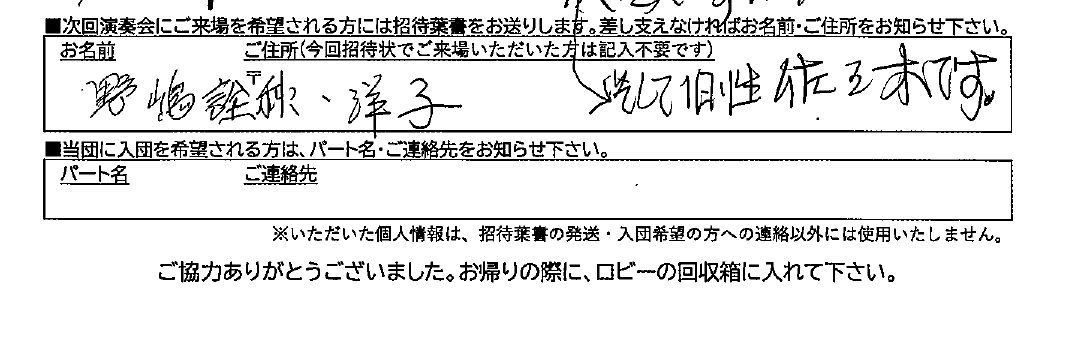 ■次回演奏会にご来場を希望される方には招待葉書をお送りします。差し支えなければお名前・ご住所をお知らせ下さい。
お名前 ご住所(今回招待状でご来場いただいた方は記入不要です)
〒
野嶋 、洋子 して旧性 佐々木です。
■当団に入団を希望される方は、パート名・ご連絡先をお知らせ下さい。
パート名 ご連絡先
※いただいた個人情報は、招待葉書の発送・入団希望の方への連絡以外には使用いたしません。
ご協力ありがとうございました。お帰りの際に、ロビーの回収箱に入れて下さい。